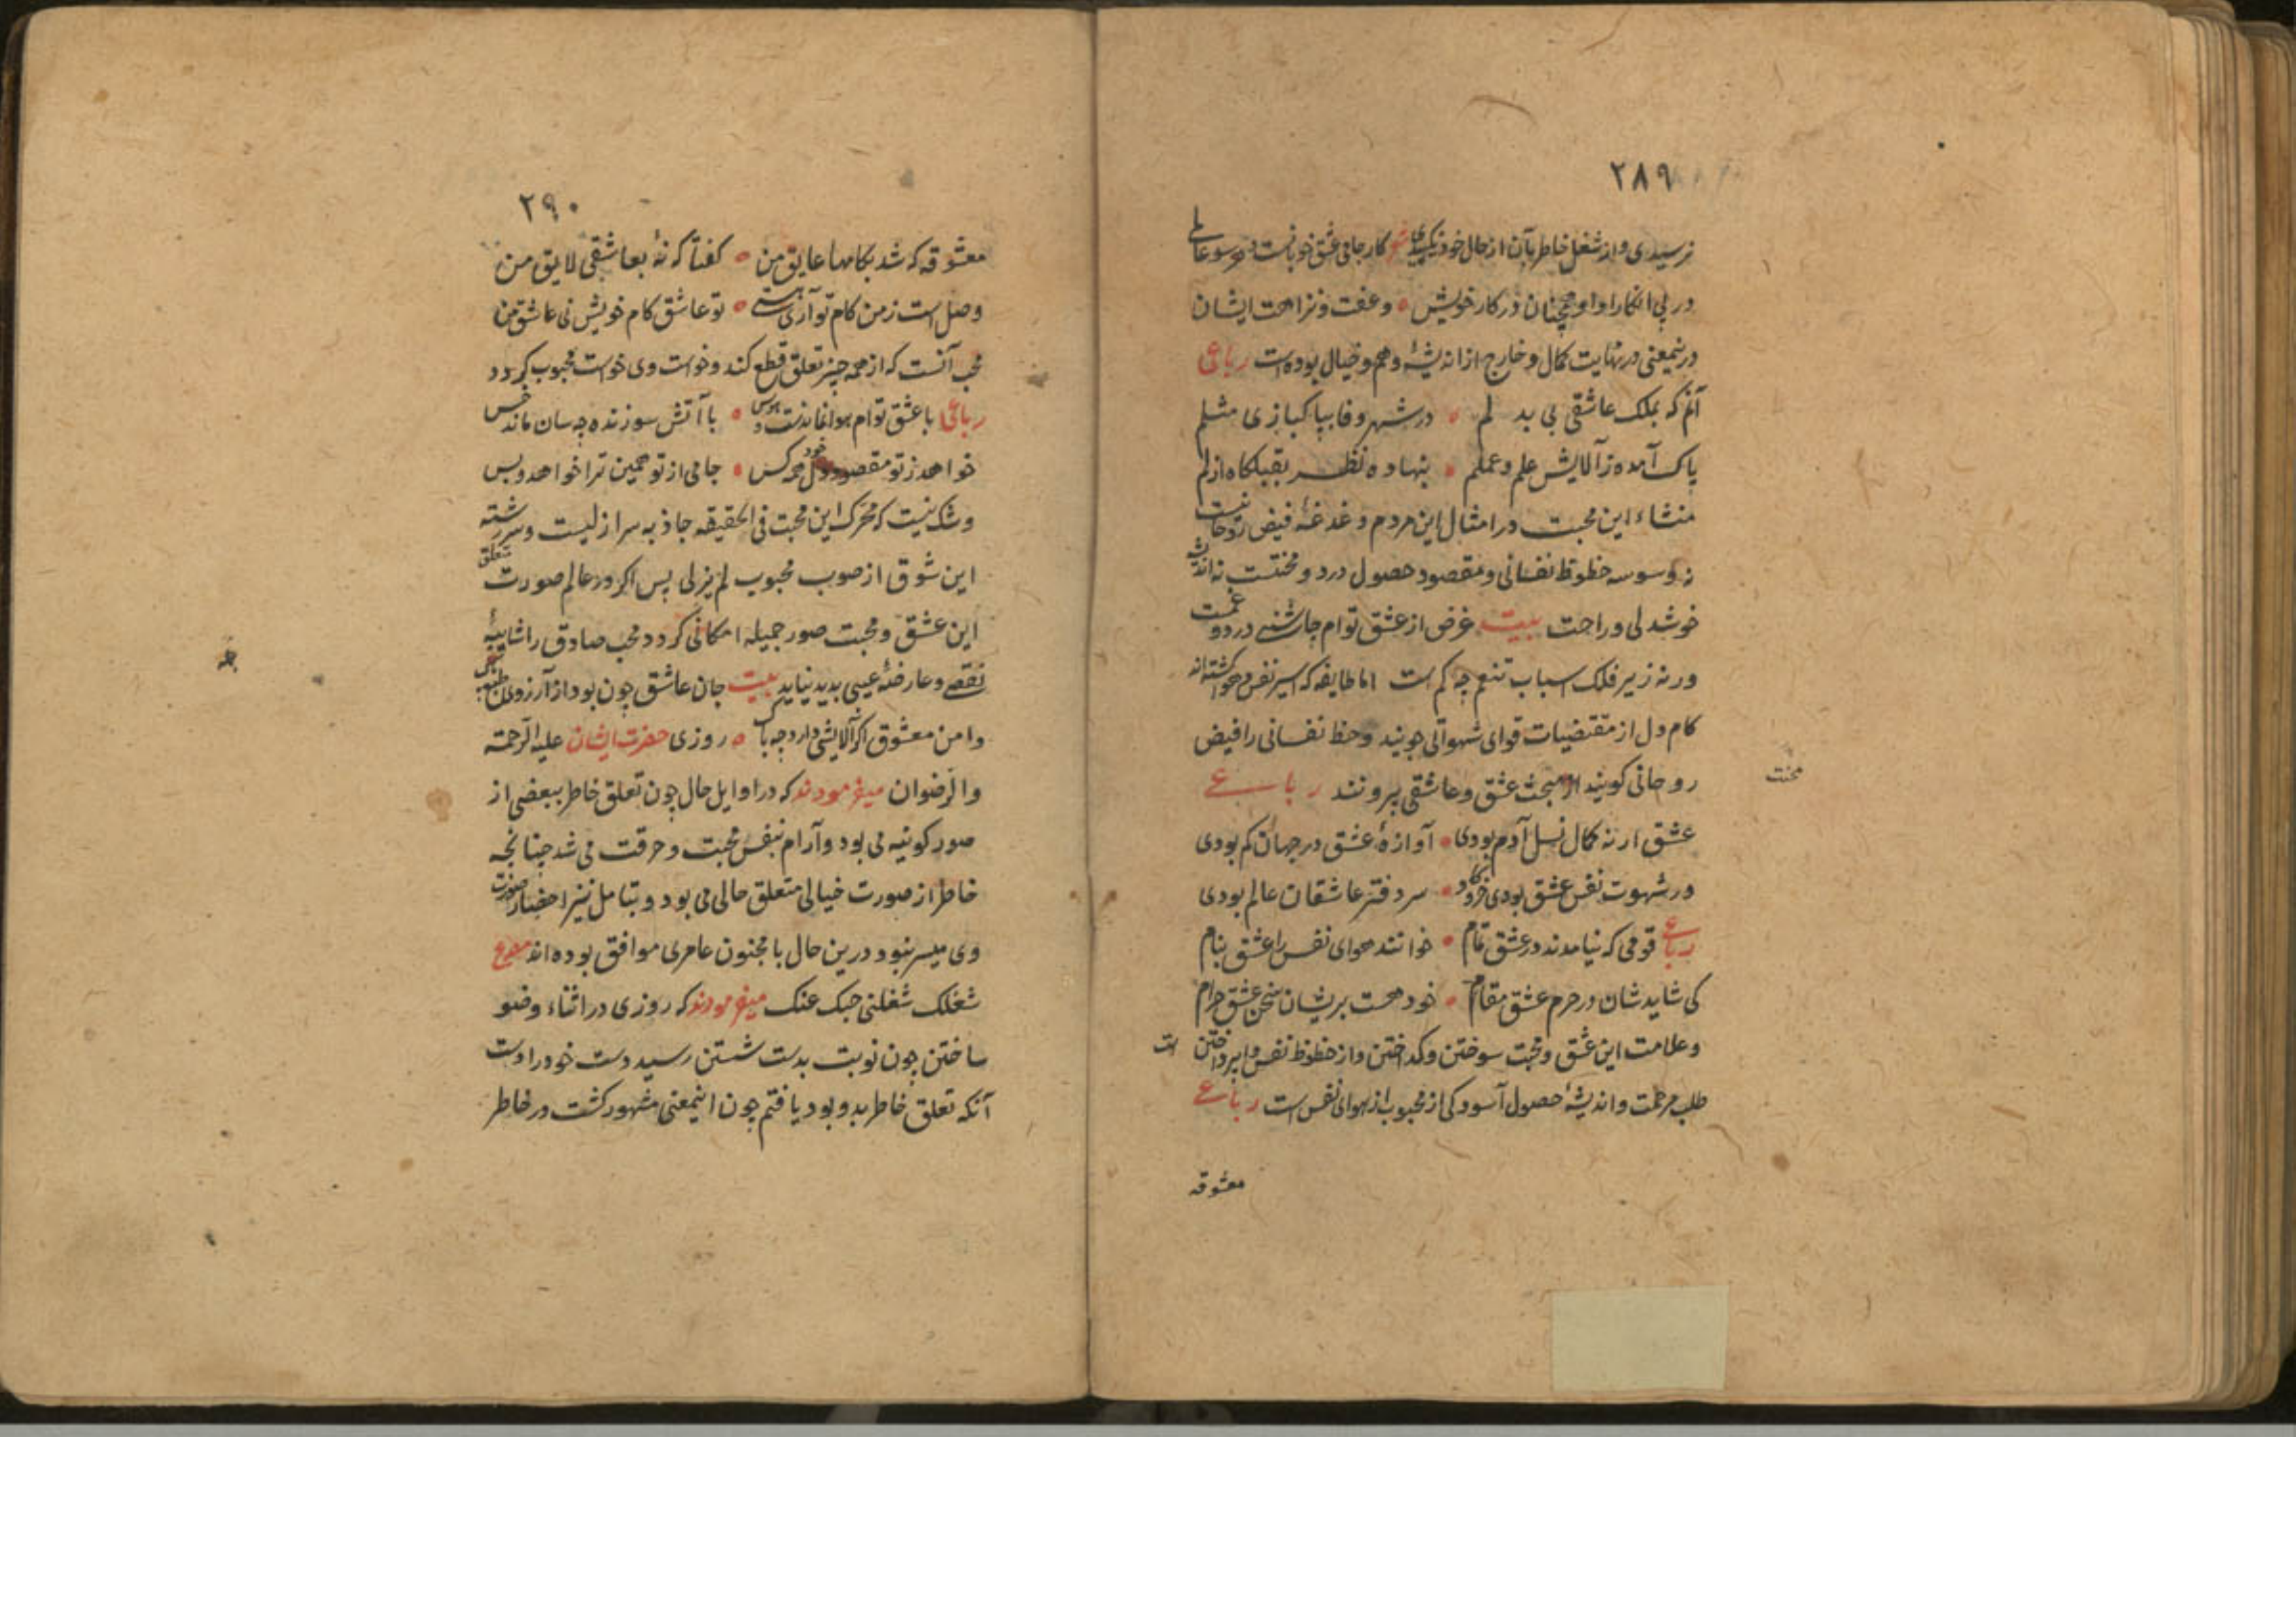 ۲۸۹
نرسیدی و از شغل خاطر بآن از حال خود نگسیدی شعر کار جامی عشق خوبانست و هر سو عالمی
در پی انکار او او همچنان در کار خویش ه و عفت و نزاهت ایشان
درینمعنی در نهایت کمال و خارج از اندیشهٔ وهم و خیال بوده است رباعی
آنم که بملک عاشقی بی بدلم ه در شهر وفا بپاکبازی مثلم
پاک آمده ز آلایش علم و عملم ه بنهاده نظر بقبلکاه ازلم
منشاء این محبت در امثال این مردم دغدغهٔ فیض روحانیست
نه وسوسه حظوظ نفسانی و مقصود حصول درد و محنتست نه اندیشه
خوشدلی و راحت بیت غرض از عشق توام چاشنی درد و غمست
ورنه زیر فلک اسباب تنعم چه کم است اما طایفه که اسیر نفس و هوا کشته اند
کام دل از مقتضیات قوای شهوانی جویند و حظ نفسانی را فیض
روحانی کویند از مبحث عشق و عاشقی بیرونند رباعی
محنت
عشق ار نه کمال نسل آدم بودی ه آوازهٔ عشق در جهان کم بودی
ور شهوت نفس عشق بودی خر و کاو ه سر دفتر عاشقان عالم بودی
رباعی قومی که نیامدند در عشق تمام ه خوانند هوای نفس را عشق بنام
کی شاید شان در حرم عشق مقام ه خود هست بریشان سخن عشق حرام
و علامت این عشق و محبت سوختن و کداختن و از حظوظ نفس وا پرداختن است
طلب مرحمت و اندیشهٔ حصول آسودکی از محبوب از هوای نفس است رباعی
معشوقه
۲۹۰
معشوقه که شد بکامها عایق من ه کفتا که نهٔ بعاشقی لایق من
وصل است ز من کام تو آری هستی ه تو عاشق کام خویش نی عاشق من
محب آنست که از همه چیز تعلق قطع کند و خواست وی خواست محبوب کردد
رباعی با عشق توام هوا نماندست و هوس ه با آتش سوزنده چه سان ماند خس
خواهد ز تو مقصود دل خود همه کس ه جامی از تو همین ترا خواهد و بس
و شک نیست که محرک این محبت فی الحقیقه جاذبه سر ازلیست و سررشته
این شوق از صوب محبوب لم یزلی پس اکر در عالم صورت متعلق
این عشق و محبت صور جمیله امکانی کردد محب صادق را شایبهٔ
نقصی و عارضهٔ عیبی پدید نیاید بیت جان عاشق چون بود از آرزوی طبع پاک
دامن معشوق اکر آلایشی دارد چه باک ه روزی حضرت ایشان علیه الرحمة
والرضوان میفرمودند که در اوایل حال چون تعلق خاطر ببعضی از
صور کونیه می بود و آرام بنفس محبت و حرقت می شد چنانچه
خاطر از صورت خیالی متعلق خالی می بود و بتامل نیز احضار صورت
وی میسر نبود درین حال با مجنون عامری موافق بوده اند مصرع
شغلک شغلنی حبک عنک میفرمودند که روزی در اثناء وضو
ساختن چون نوبت بدست شستن رسید دست خود را دست
آنکه تعلق خاطر بدو بود یافتم چون اینمعنی مشهور کشت در خاطر